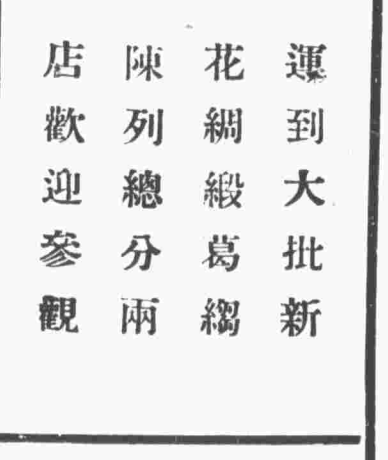 運到大批新
花綢緞葛縐
陳列總分兩
店歡迎參觀